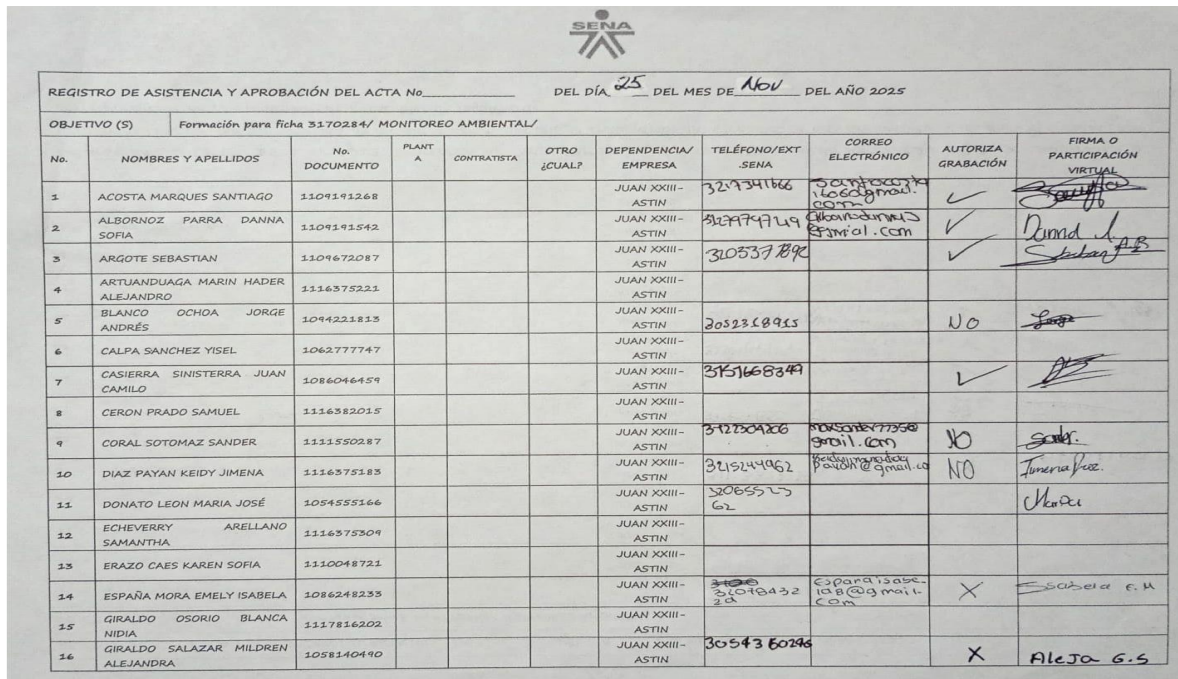 SENA
REGISTRO DE ASISTENCIA Y APROBACIÓN DEL ACTA No____________ DEL DÍA 25 DEL MES DE Nov DEL AÑO 2025
OBJETIVO (S) Formación para ficha 3170284/ MONITOREO AMBIENTAL/
No. NOMBRES Y APELLIDOS No. DOCUMENTO PLANTA CONTRATISTA OTRO ¿CUAL? DEPENDENCIA/ EMPRESA TELÉFONO/EXT .SENA CORREO ELECTRÓNICO AUTORIZA GRABACIÓN FIRMA O PARTICIPACIÓN VIRTUAL
1 ACOSTA MARQUES SANTIAGO 1109191268 JUAN XXIII- ASTIN 3217341666 ✓
2 ALBORNOZ PARRA DANNA SOFIA 1109191542 JUAN XXIII- ASTIN ✓
3 ARGOTE SEBASTIAN 1109672087 JUAN XXIII- ASTIN ✓
4 ARTUANDUAGA MARIN HADER ALEJANDRO 1116375221 JUAN XXIII- ASTIN
5 BLANCO OCHOA JORGE ANDRÉS 1094221813 JUAN XXIII- ASTIN 3052318915 NO
6 CALPA SANCHEZ YISEL 1062777747 JUAN XXIII- ASTIN
7 CASIERRA SINISTERRA JUAN CAMILO 1086046459 JUAN XXIII- ASTIN 3151668349 ✓
8 CERON PRADO SAMUEL 1116382015 JUAN XXIII- ASTIN
9 CORAL SOTOMAZ SANDER 1111550287 JUAN XXIII- ASTIN 3122304206 NO Sander.
10 DIAZ PAYAN KEIDY JIMENA 1116375183 JUAN XXIII- ASTIN 3215244962 NO
11 DONATO LEON MARIA JOSÉ 1054555166 JUAN XXIII- ASTIN
12 ECHEVERRY ARELLANO SAMANTHA 1116375309 JUAN XXIII- ASTIN
13 ERAZO CAES KAREN SOFIA 1110048721 JUAN XXIII- ASTIN
14 ESPAÑA MORA EMELY ISABELA 1086248233 JUAN XXIII- ASTIN X
15 GIRALDO OSORIO BLANCA NIDIA 1117816202 JUAN XXIII- ASTIN
16 GIRALDO SALAZAR MILDREN ALEJANDRA 1058140490 JUAN XXIII- ASTIN 3054360296 X Aleja G.S